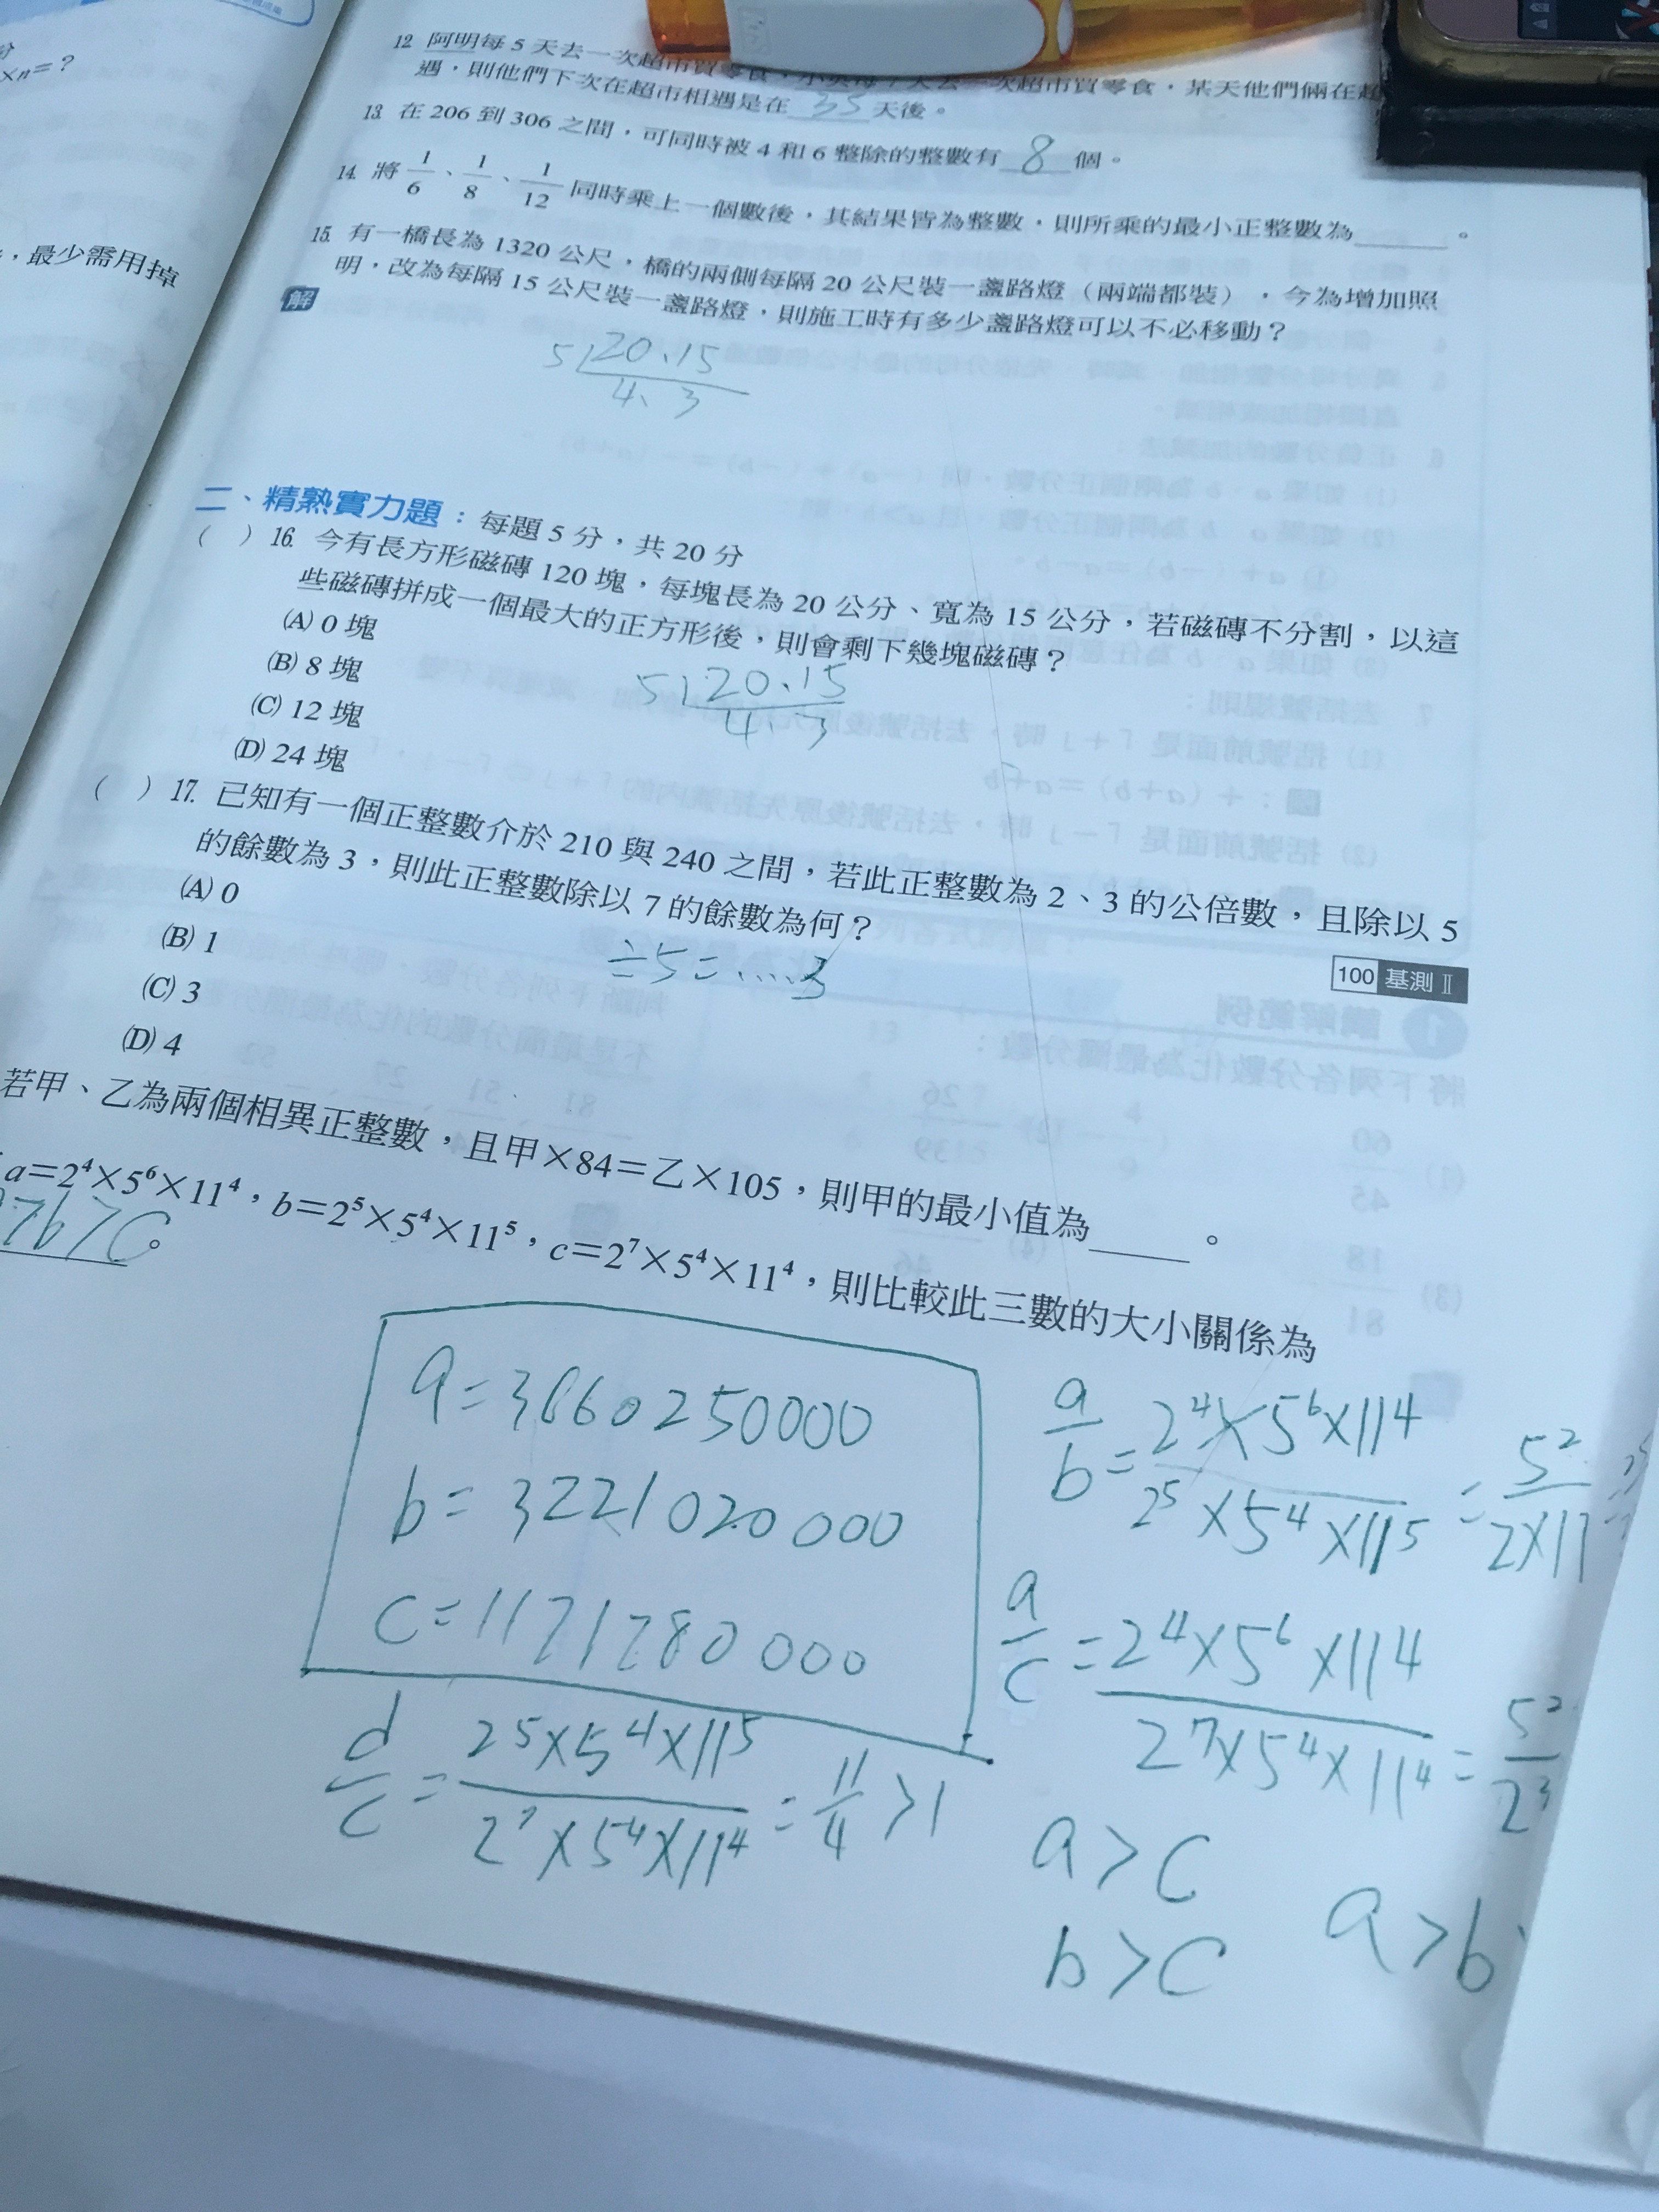 ×n=?
，最少需用掉
12. 阿明每 5 天去一次超市買零食，
次超市買零食，某天他們倆在超
遇，則他們下次在超市相遇是在 35 天後。
13. 在 206 到 306 之間，可同時被 4 和 6 整除的整數有 8 個。
14. 將 1/6、1/8、1/12 同時乘上一個數後，其結果皆為整數，則所乘的最小正整數為______。
15. 有一橋長為 1320 公尺，橋的兩側每隔 20 公尺裝一盞路燈（兩端都裝），今為增加照
明，改為每隔 15 公尺裝一盞路燈，則施工時有多少盞路燈可以不必移動？
解
5 20、15
4、3
二、精熟實力題：每題 5 分，共 20 分
（ ）16. 今有長方形磁磚 120 塊，每塊長為 20 公分、寬為 15 公分，若磁磚不分割，以這
些磁磚拼成一個最大的正方形後，則會剩下幾塊磁磚？
(A) 0 塊
(B) 8 塊
(C) 12 塊
(D) 24 塊
5 20、15
4、3
（ ）17. 已知有一個正整數介於 210 與 240 之間，若此正整數為 2、3 的公倍數，且除以 5
的餘數為 3，則此正整數除以 7 的餘數為何？
100 基測Ⅱ
(A) 0
(B) 1
(C) 3
(D) 4
÷5=....3
若甲、乙為兩個相異正整數，且甲×84=乙×105，則甲的最小值為______。
a=2⁴×5⁶×11⁴，b=2⁵×5⁴×11⁵，c=2⁷×5⁴×11⁴，則比較此三數的大小關係為
>b>c。
a=3660250000
b=3221020000
c=1171280000
a/b=2⁴×5⁶×11⁴/2⁵×5⁴×11⁵=5²/2×11
a/c=2⁴×5⁶×11⁴/2⁷×5⁴×11⁴=5²/2³
d/c=2⁵×5⁴×11⁵/2⁷×5⁴×11⁴=11/4>1
a>c
b>c
a>b